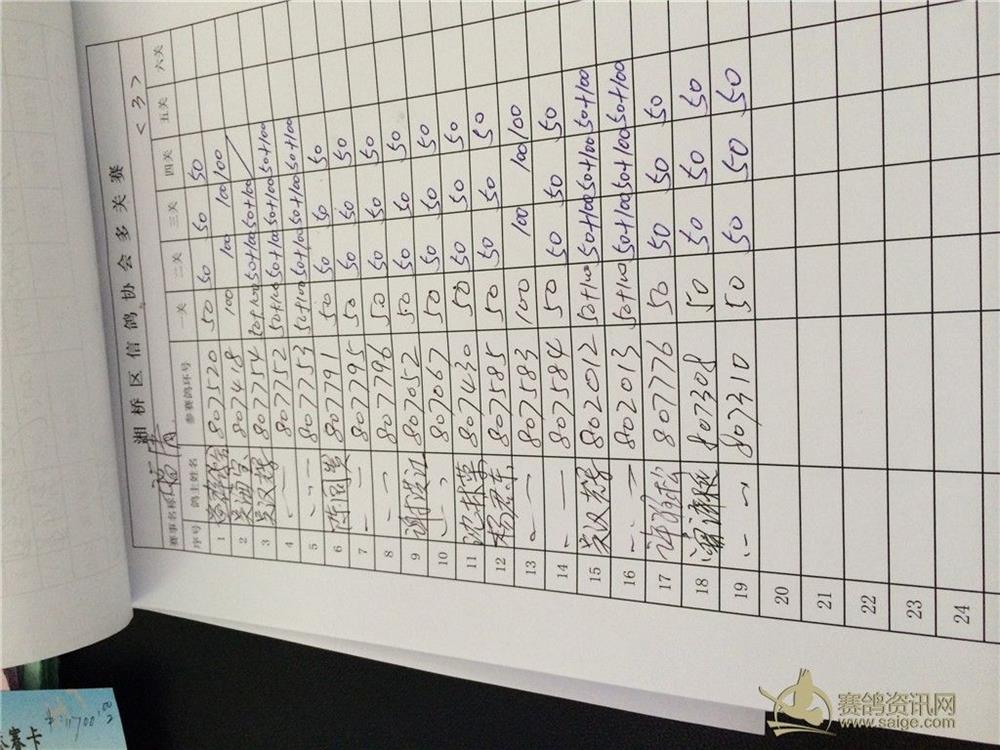 湘桥区信鸽协会多关赛
<3>
赛事名称 福清
序号 鸽主姓名 参赛鸽环号 一关 二关 三关 四关 五关 六关
1 807520 50 50 50 50
2 807418 100 100 100 100
3 吴汉辉 807754 50+100 50+100 50+100
4 807752 50+100 50+100 50+100 50+100
5 807753 50+100 50+100 50+100 50+100
6 807791 50 50 50 50
7 807795 50 50 50 50
8 807796 50 50 50 50
9 807052 50 50 50 50
10 807067 50 50 50 50
11 沈林荣 807430 50 50 50 50
12 杨宏东 807585 50 50 50 50
13 807583 100 100 100 100
14 807584 50 50 50 50 50
15 吴汉辉 802012 50+100 50+100 50+100 50+100
16 802013 50+100 50+100 50+100 50+100
17 807776 50 50 50 50
18 807308 50 50 50 50
19 807310 50 50 50 50
20
21
22
23
24
赛卡
赛鸽资讯网
www.saige.com